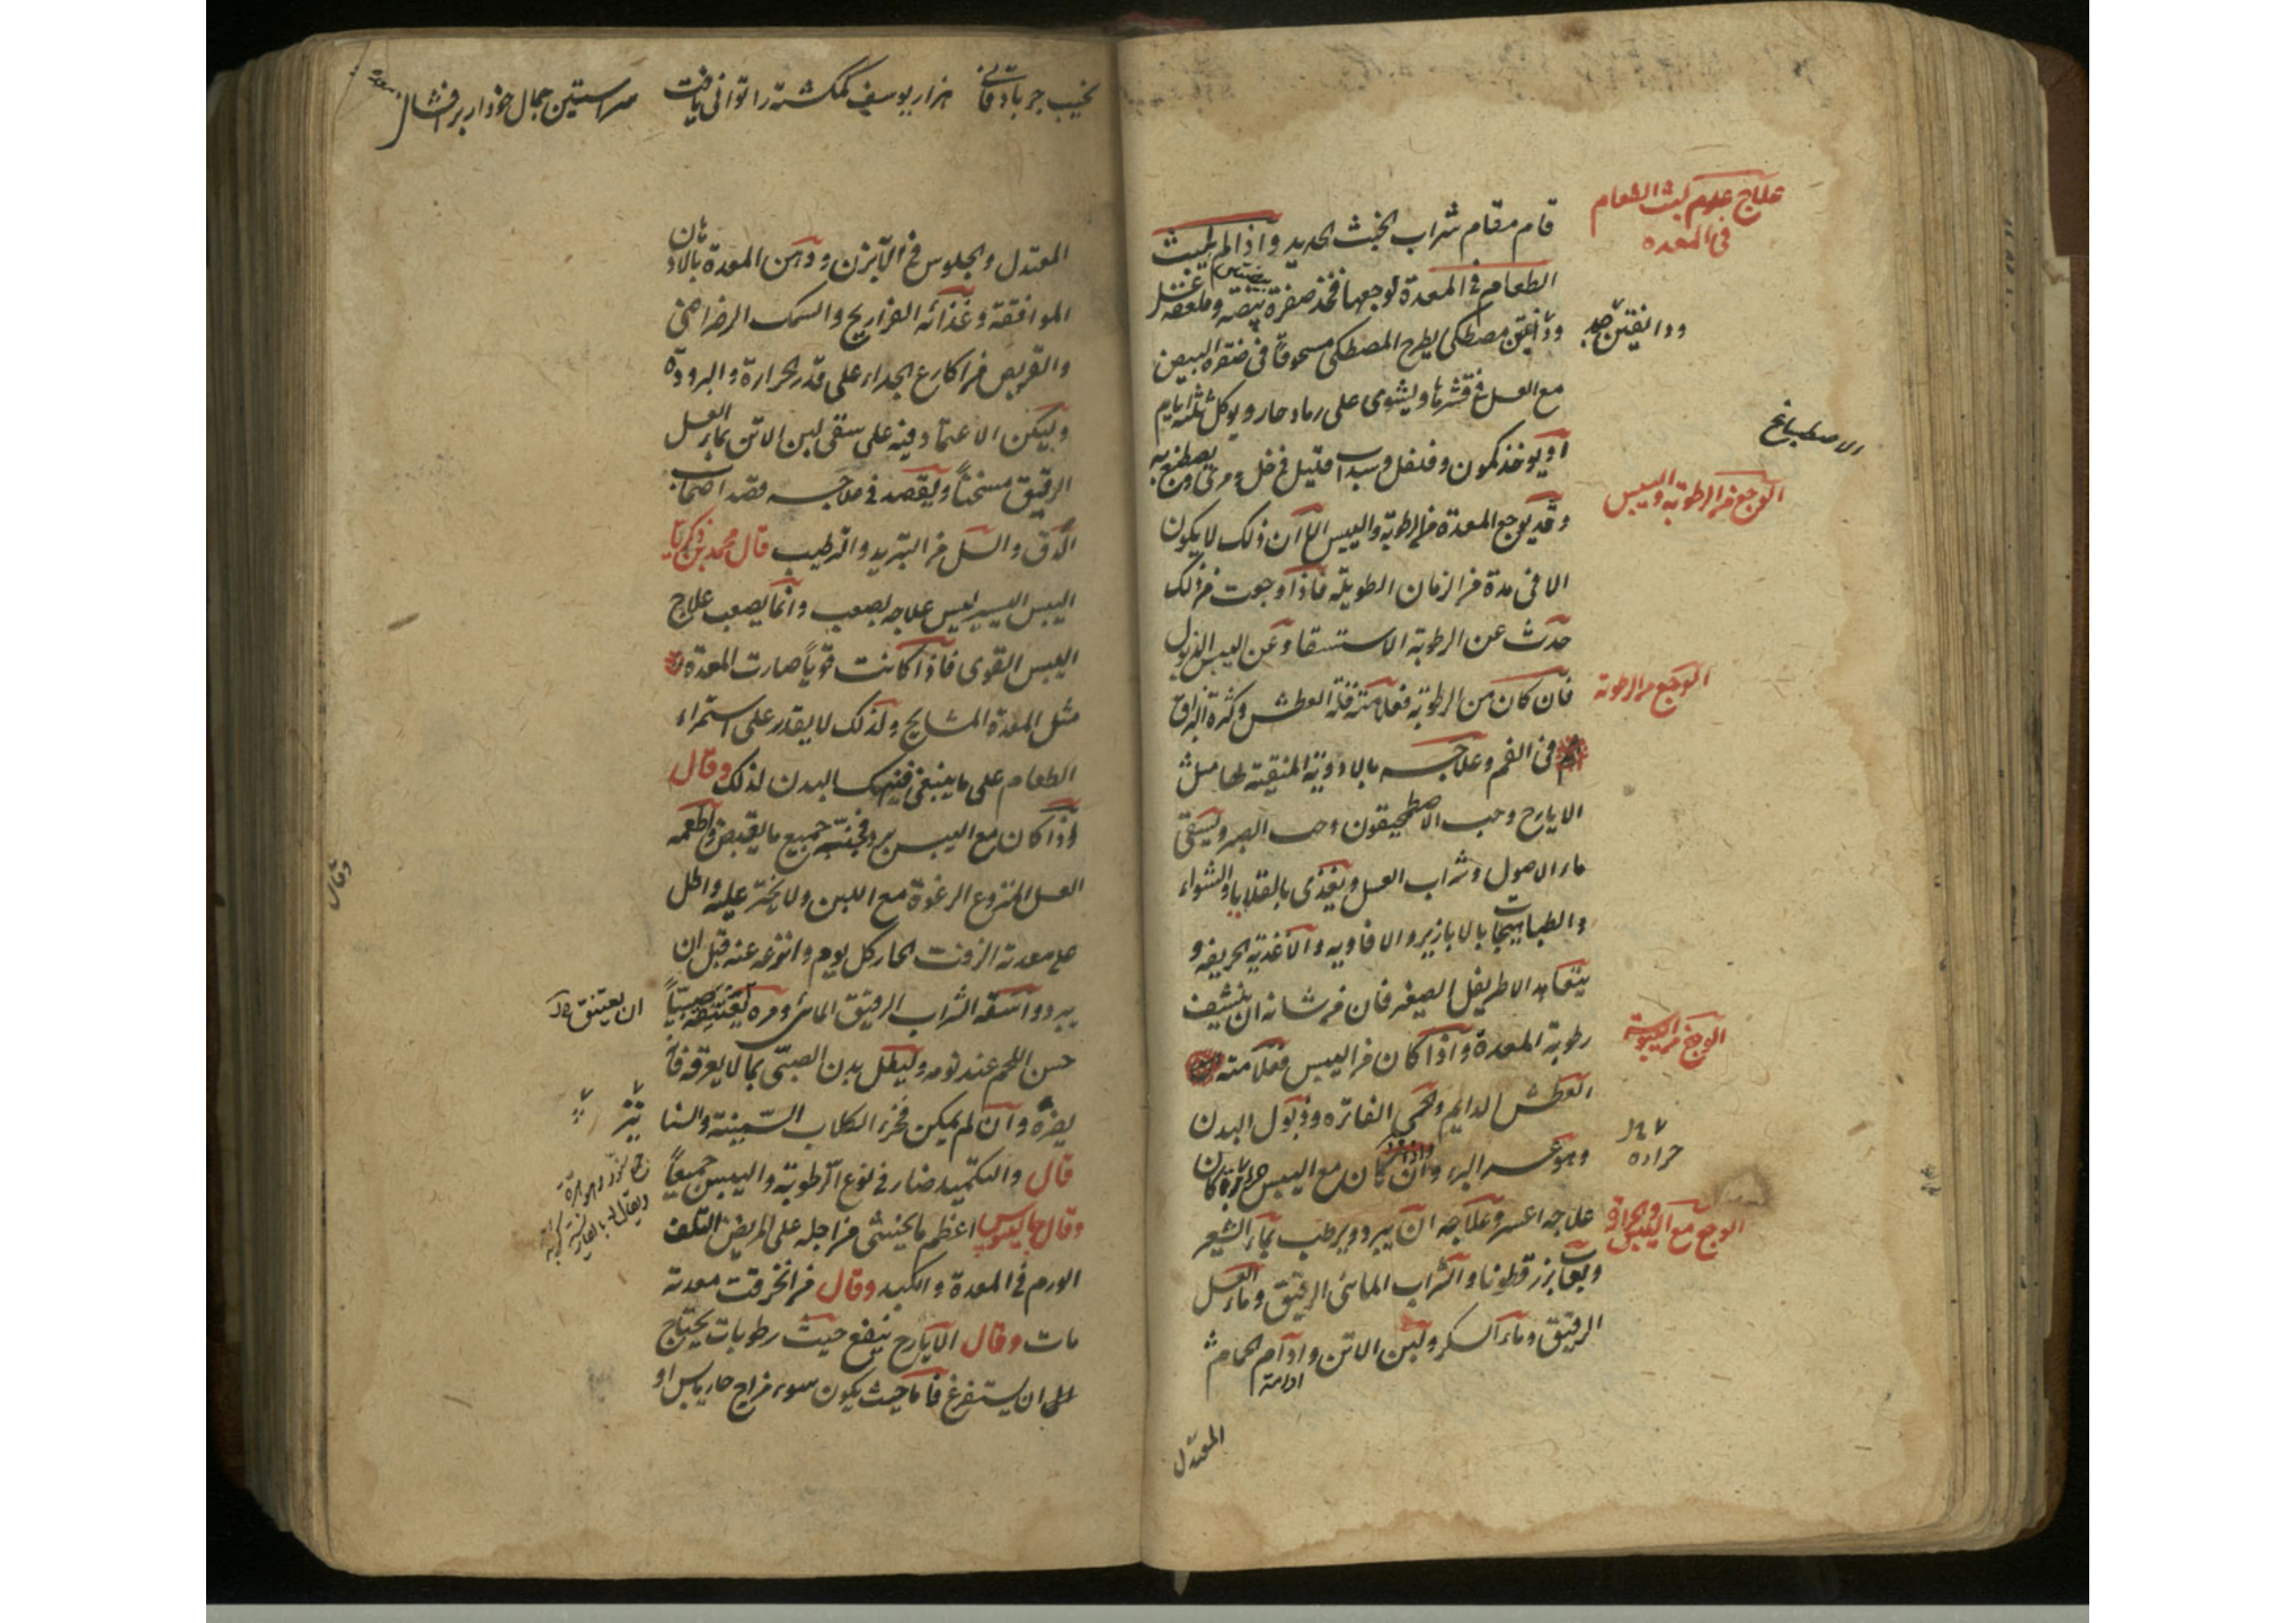 علاج عدم لبث الطعام
فى المعده
قام مقام شراب الخبث الحديد واذا لم يلبث
الطعام فى المعدة لوجعها فخذ صفرة بيضة وملعقه عسل
ودانقين مصطكى يطرح المصطكى مسحوقاً فى صفرة البيض
مع العسل فى قشرها ويشوى على رماد حار ويوكل ثلثه ايام
او يوخذ كمون وفلفل وسداب فتيل فى خل ومرى ويصطبغ به
الاصطباغ
الوجع من الرطوبة واليبس
وقد يوجع المعدة من الرطوبة واليبس الا ان ذلك لا يكون
الا فى مدة من الزمان الطويلة فاذا وجعت من ذلك
حدث عن الرطوبة الاستسقا وعن اليبس الذبول
الوجع من الرطوبة
فان كان من الرطوبة فعلامته قلة العطش وكثرة البزاق
فى الفم وعلاجه بالادوية المنقية لها مثل
الايارج وحب الاصطمحيقون وحب الصبر ويسقى
ماء الاصول وشراب العسل ويغذى بالقلايا والشواء
والطباهيجات بالابازير والافاويه والاغذية الحريفه و
يتعاهد الاطريفل الصغير فان من شانه ان ينشف
الوجع من اليبوسة
رطوبة المعدة واذا كان من اليبس فعلامته
العطش الدايم والحمى الفاتره وذبول البدن
حراره
وهو عسر البرء وان كان مع اليبس حرارة كان
الوجع مع اليبس والحرارة
علاجه اعسر وعلاجه ان يبرد ويرطب بماء الشعير
ولعاب بزر قطونا والشراب المائى الرقيق وماء العسل
الرقيق وماء السكر ولبن الاتن وادام الحمام
ادامة
المعتدل
نجيب جرباذقانى هزار يوسف گمگشته را توانى يافت
المعتدل والجلوس فى الابزن ودهن المعدة بالادهان
الموافقة وغذائه الفراريج والسمك الرضراضى
والقريص من اكارع الجداء على قدر الحرارة والبرودة
وليكن الاعتماد فيه على سقى لبن الاتن بماء العسل
الرقيق مسخناً ويقصد فى علاجه قصد اصحاب
الدق والسل من التبريد والترطيب قال محمد بن زكريا
اليبس اليسير ليس علاجه بصعب وانما يصعب علاج
اليبس القوى فاذا كانت قوياً صارت المعدة
مثل المعدة المشايخ ولذلك لا يقدر على استمراء
الطعام على ما ينبغى فينهك البدن لذلك وقال
واذا كان مع اليبس برد فجنبه جميع ما يقبض واطعمه
العسل المنزوع الرغوة مع اللبن ولا تختر عليه واطل
على معدته الزفت الحار كل يوم وانزعه عنه قبل ان
يبرد واسقه الشراب الرقيق المائى ومره يعتنق صبياً
ان يعتنق
حسن اللحم عند نومه وليطل بدن الصبى بما لا يعرقه فانه
يضره وان لم يمكن فجرء الكلاب السمينة والسنا
نير
قال والتكميد ضار فى نوع الرطوبة واليبس جميعاً
وقال جالينوس اعظم ما يخشى من اجله على المريض التلف
الورم فى المعدة والكبد وقال من انخرقت معدته
مات وقال الايارج ينفع حيث رطوبات يحتاج
الى ان يستفرغ فاما حيث يكون سوء مزاج حار يابس او
وقال